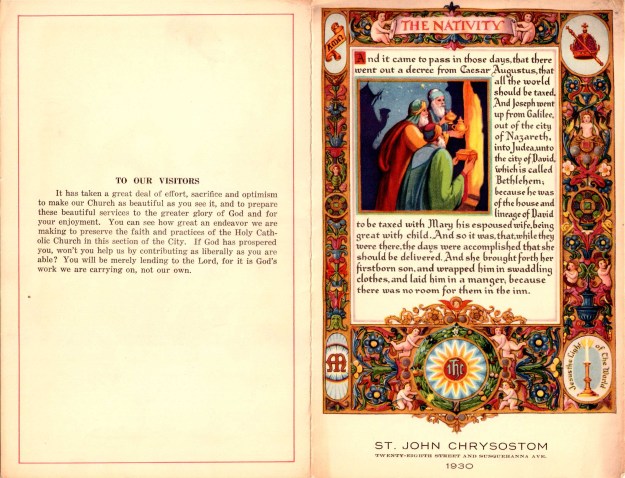 TO OUR VISITORS
It has taken a great deal of effort, sacrifice and optimism
to make our Church as beautiful as you see it, and to prepare
these beautiful services to the greater glory of God and for
your enjoyment. You can see how great an endeavor we are
making to preserve the faith and practices of the Holy Cath-
olic Church in this section of the City. If God has prospered
you, won't you help us by contributing as liberally as you are
able? You will be merely lending to the Lord, for it is God's
work we are carrying on, not our own.
THE NATIVITY
And it came to pass in those days, that there
went out a decree from Caesar Augustus, that
all the world
should be taxed.
And Joseph went
up from Galilee,
out of the city
of Nazareth,
into Judea, unto
the city of David,
which is called
Bethlehem;
because he was
of the house and
lineage of David
to be taxed with Mary his espoused wife, being
great with child. And so it was, that, while they
were there, the days were accomplished that she
should be delivered. And she brought forth her
firstborn son, and wrapped him in swaddling
clothes, and laid him in a manger, because
there was no room for them in the inn.
ihc
Jesus the Light of The World
ST. JOHN CHRYSOSTOM
TWENTY-EIGHTH STREET AND SUSQUEHANNA AVE.
1930